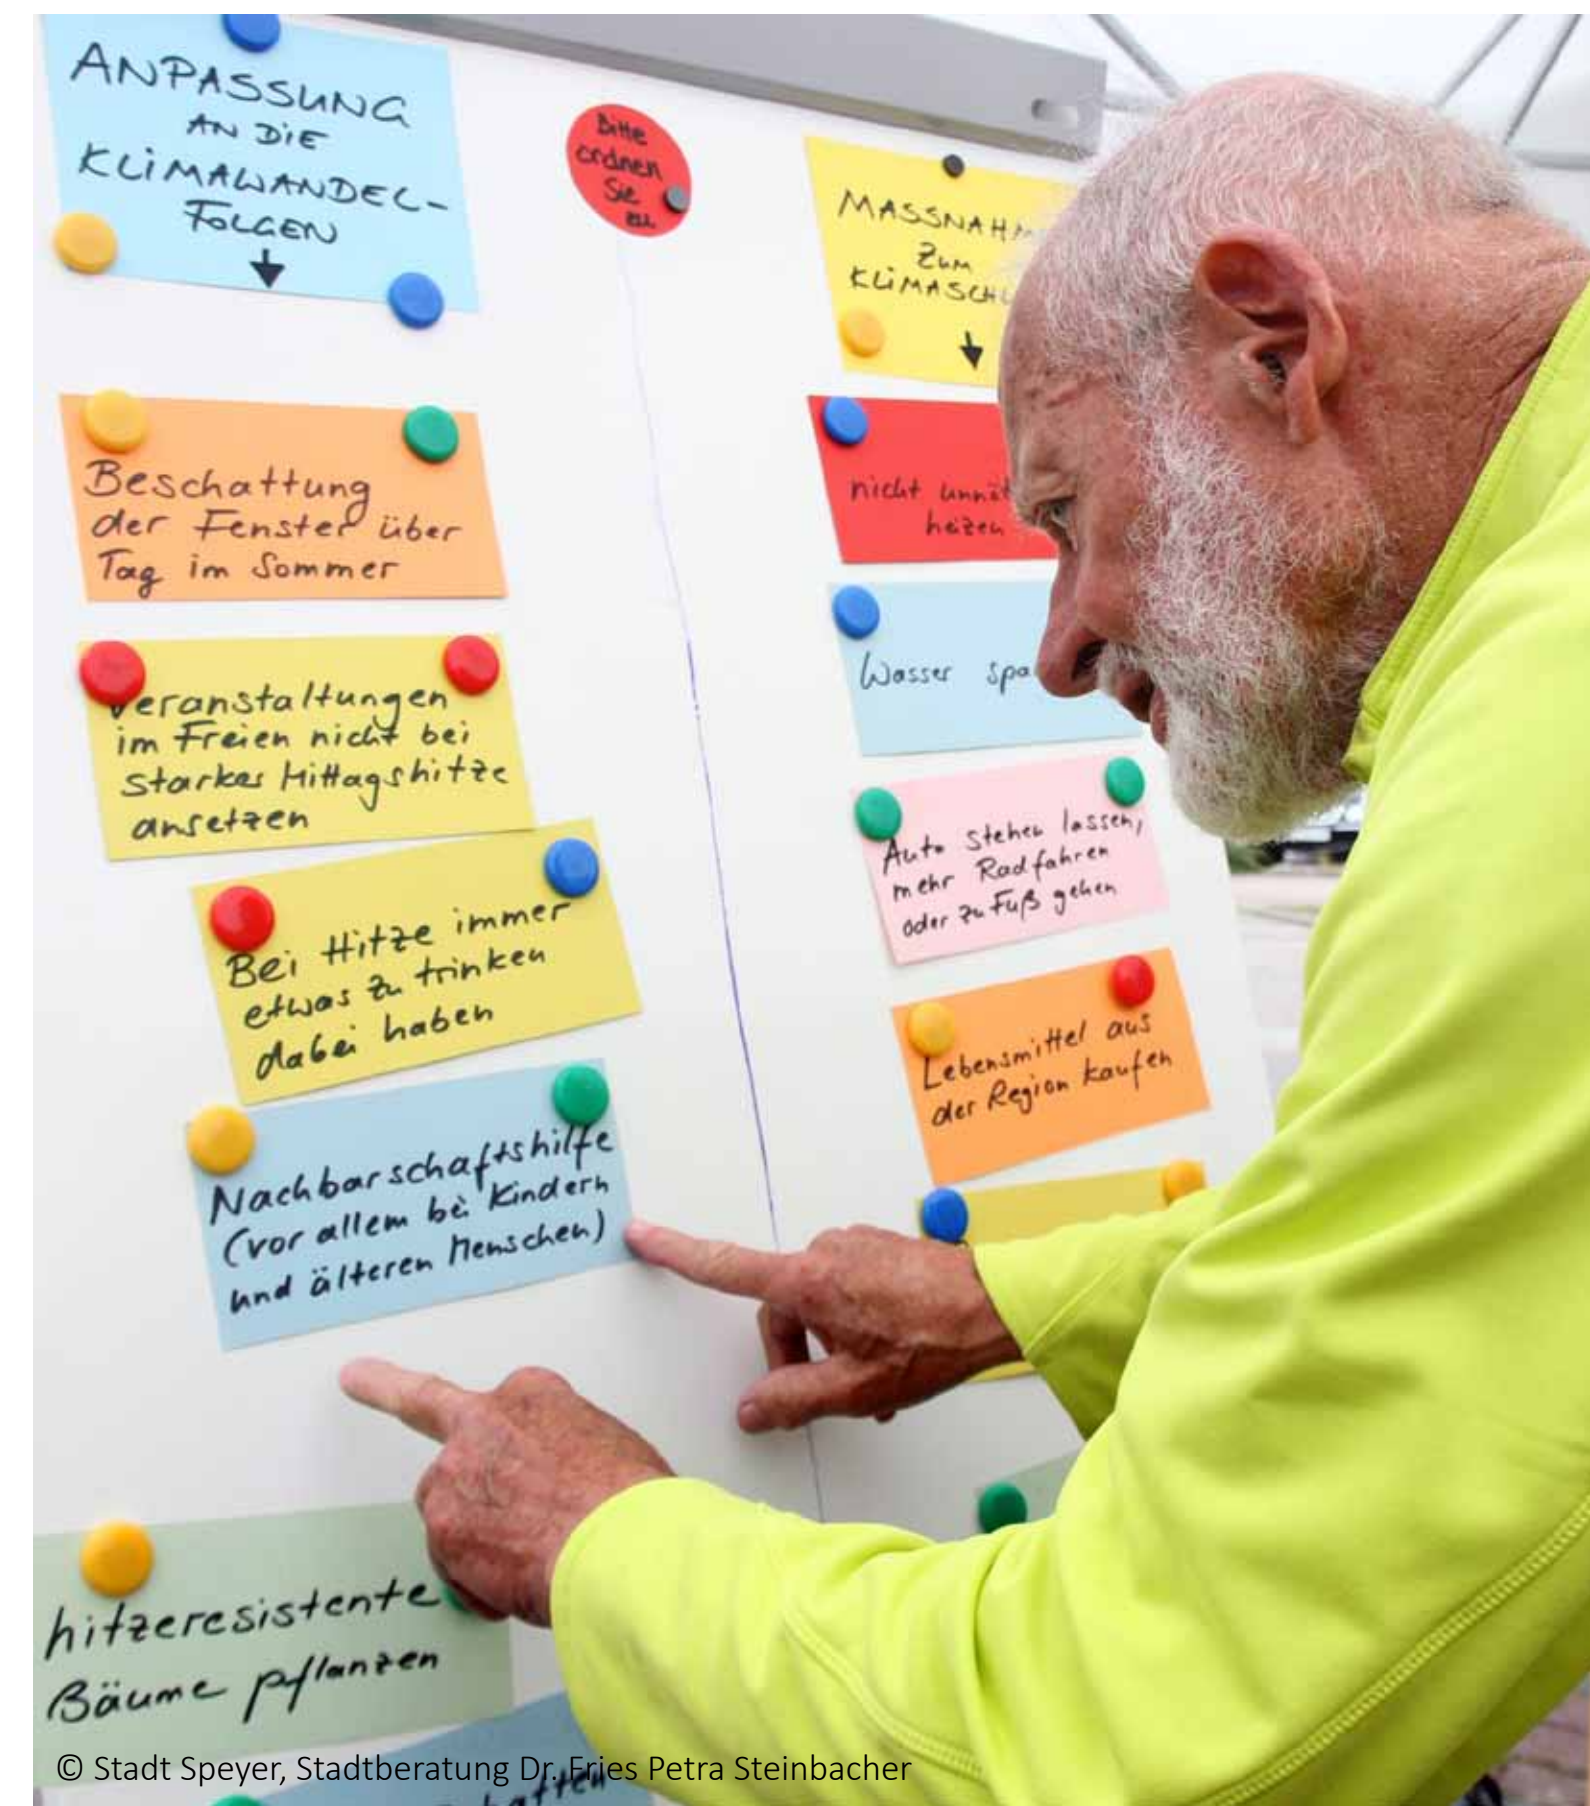 ANPASSUNG
AN DIE
KLIMAWANDEL-
FOLGEN
Bitte
ordnen
Sie
zu
MASSNAHM
ZUM
KLIMASCHU
Beschattung
der Fenster über
Tag im Sommer
Veranstaltungen
im Freien nicht bei
starker Mittagshitze
ansetzen
Bei Hitze immer
etwas zu trinken
dabei haben
Nachbarschaftshilfe
(vor allem bei Kindern
und älteren Menschen)
hitzeresistente
Bäume pflanzen
nicht unnöt
heizen
Wasser spa
Auto stehen lassen,
mehr Radfahren
oder zu Fuß gehen
Lebensmittel aus
der Region kaufen
© Stadt Speyer, Stadtberatung Dr. Fries Petra Steinbacher